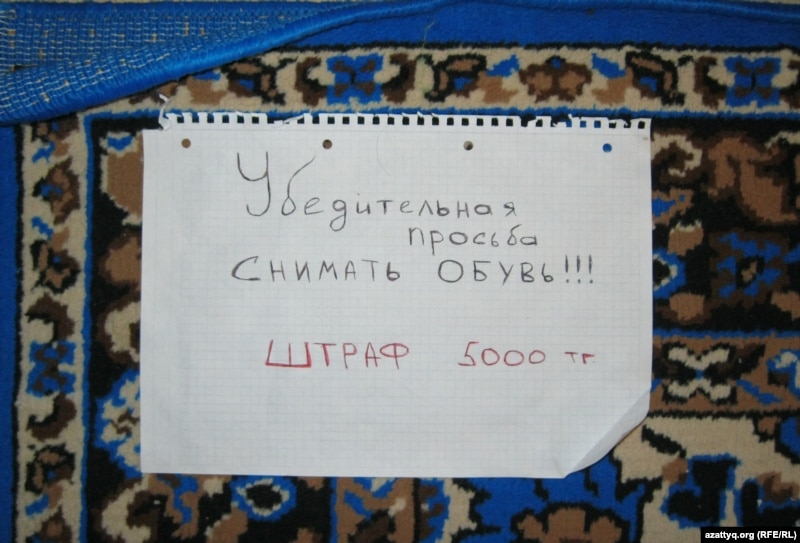 Убедительная
просьба
СНИМАТЬ ОБУВЬ!!!
ШТРАФ 5000 тг.
azattyq.org (RFE/RL)